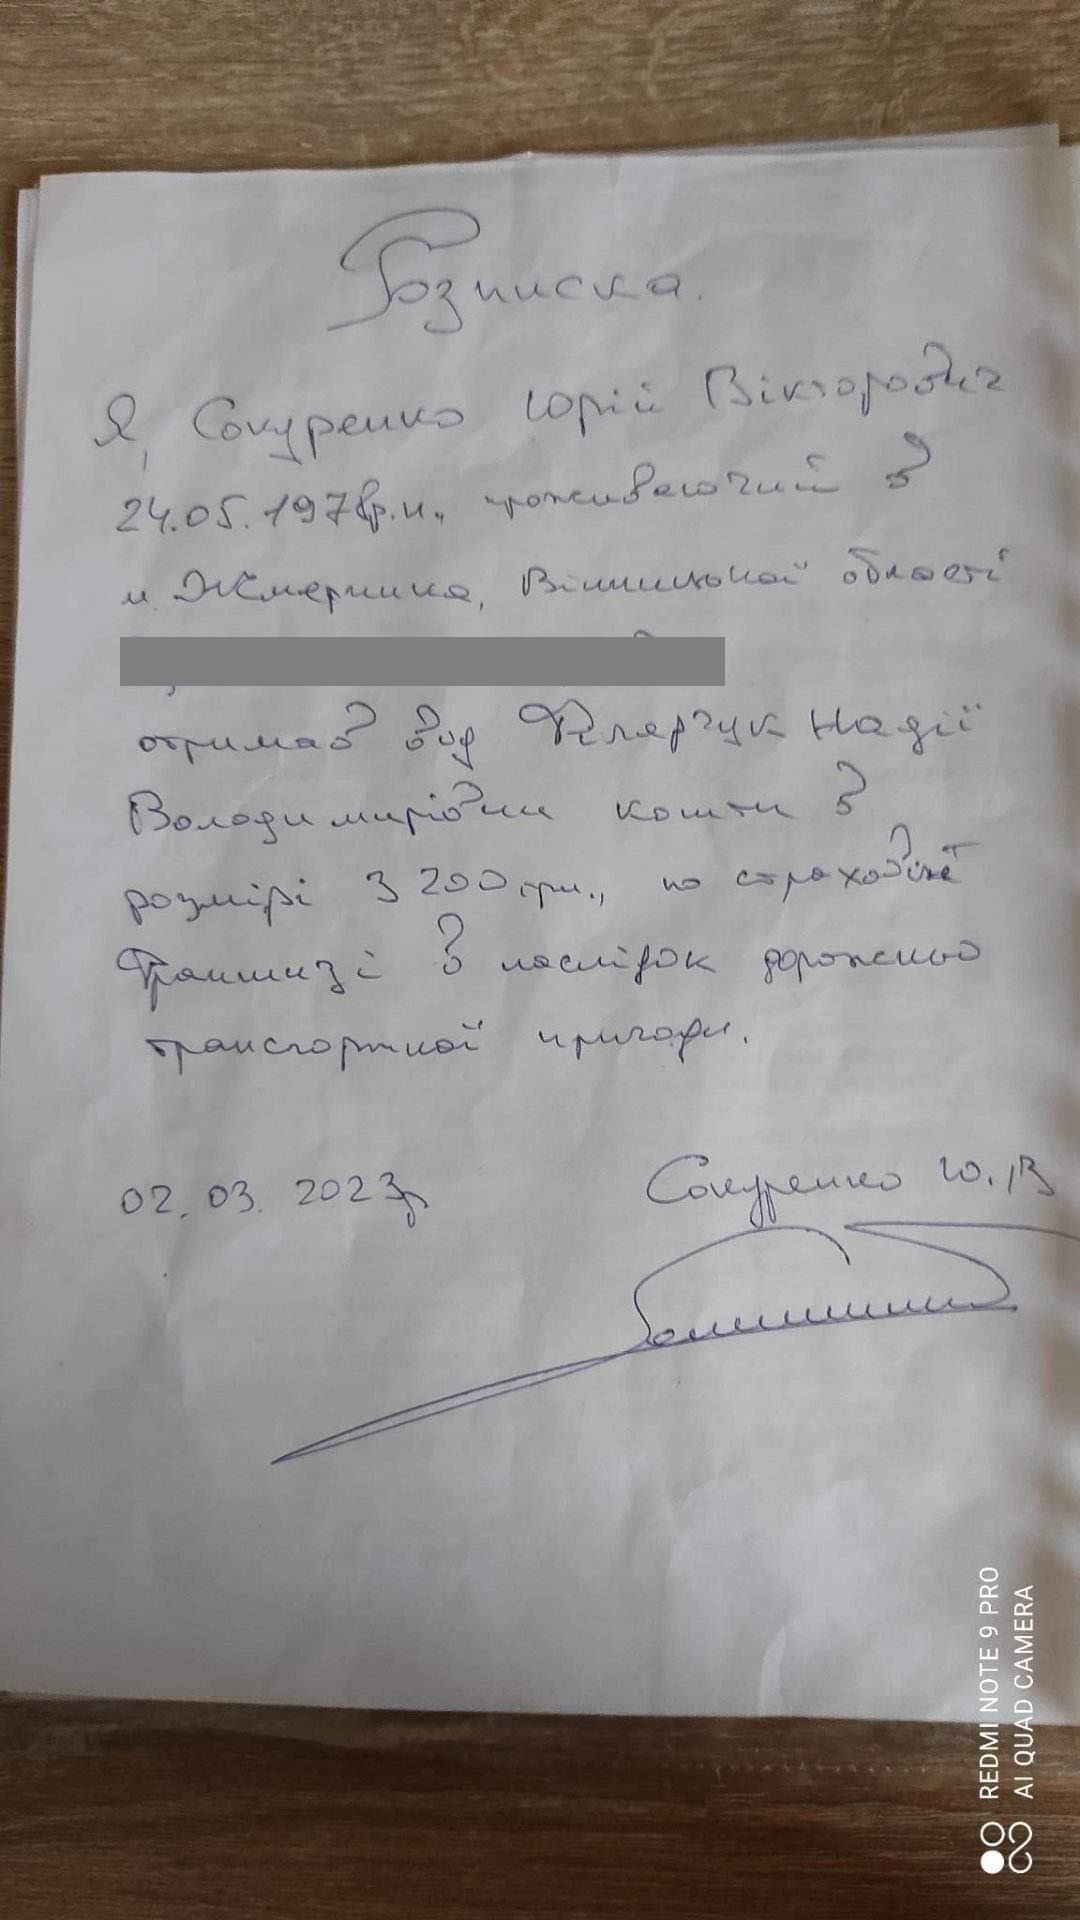 Розписка.
Я, Сокуренко Юрій Вікторович
24.05.1978р.н., проживаючий в
м. Жмеринка, Вінницької області
отримав від Філярчук Надії
Володимирівни кошти в
розмірі 3 200 грн., по страховій
франшизі в наслідок дорожньо
транспортної пригоди.
02.03.2023р
Сокуренко Ю.В
REDMI NOTE 9 PRO
AI QUAD CAMERA